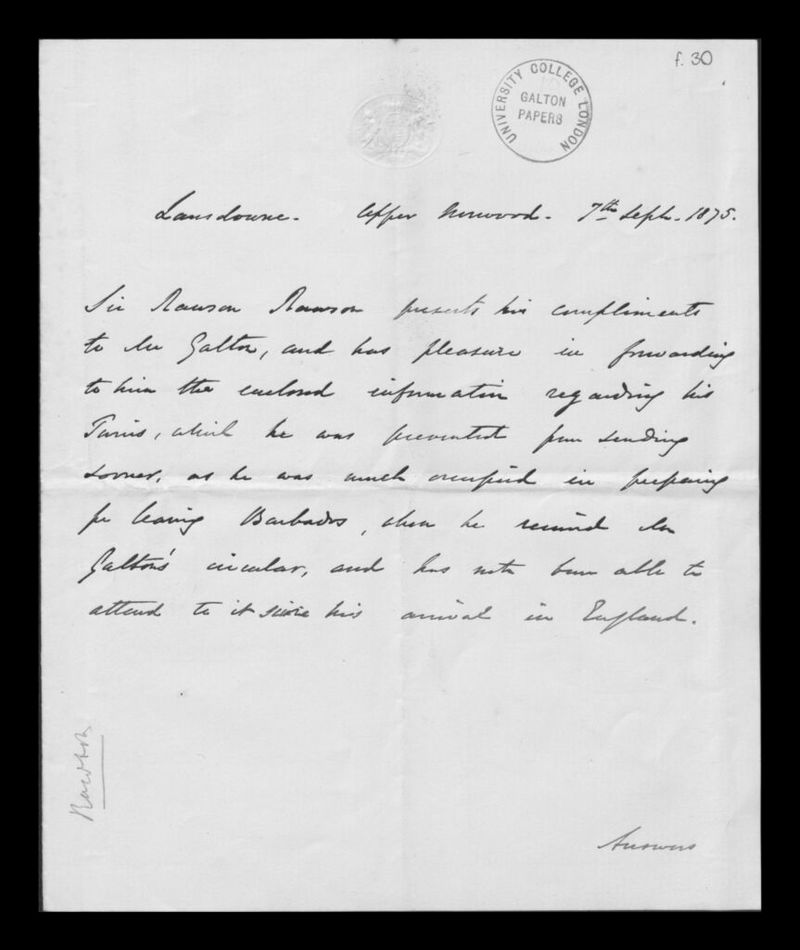 f. 30
UNIVERSITY COLLEGE LONDON
GALTON
PAPERS
Lansdowne. Upper Norwood. 7th Septr. 1875.
Sir Rawson Rawson presents his compliments
to Mr Galton, and has pleasure in forwarding
to him the enclosed information regarding his
Twins, which he was prevented from sending
sooner, as he was much occupied in preparing
for leaving Barbados, when he received Mr
Galton's circular, and has not been able to
attend to it since his arrival in England.
Rawson
Answers